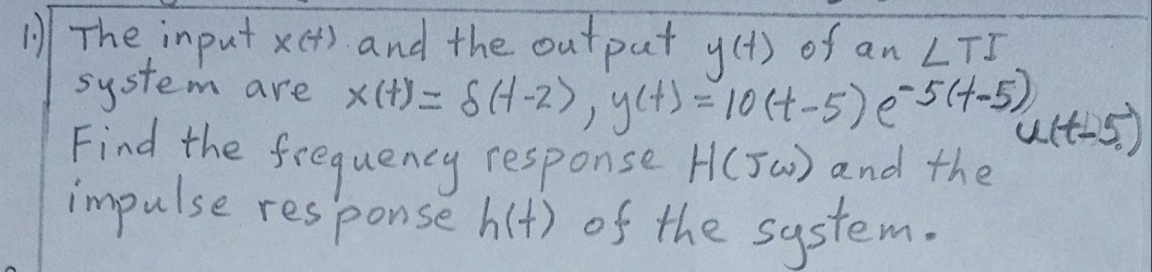 1.) The input x(t) and the output y(t) of an LTI
system are x(t) = δ(t-2), y(t) = 10(t-5) e^-5(t-5) u(t-5)
Find the frequency response H(Jω) and the
impulse response h(t) of the system.